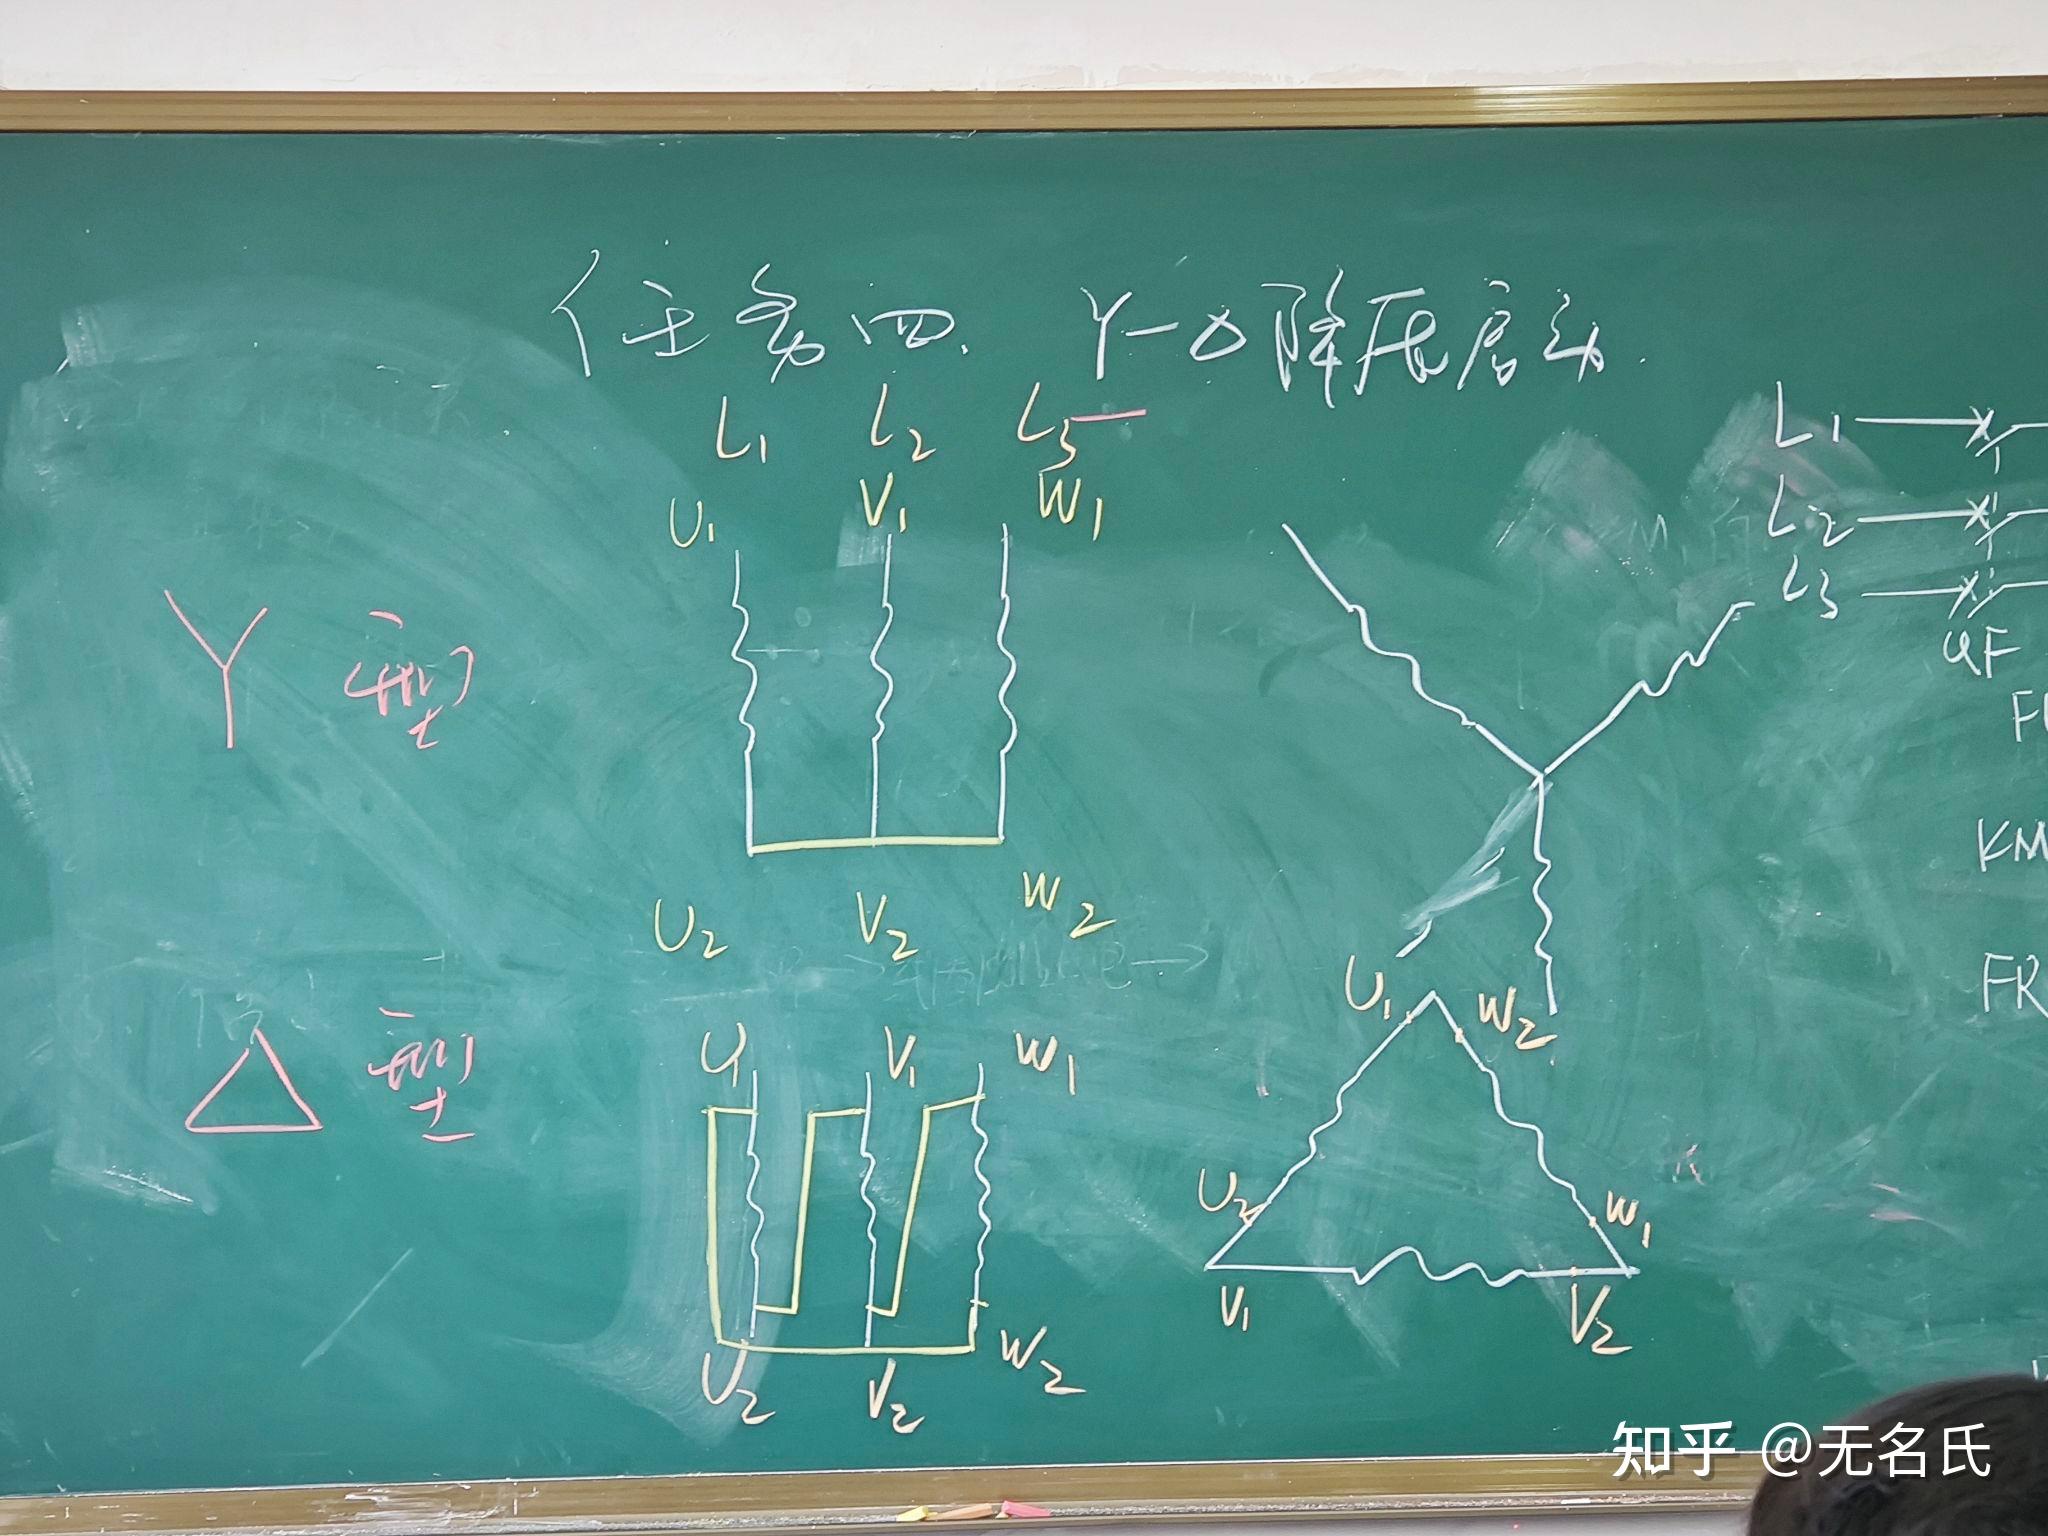 任务四. Y-△降压启动.
L1 L2 L3
U1 V1 W1
Y型
U2 V2 W2
△型
U1 V1 W1
U2 V2 W2
L1
L2
L3
QF
KM
FR
U1 W2
U2 W1
V1 V2
知乎 @无名氏